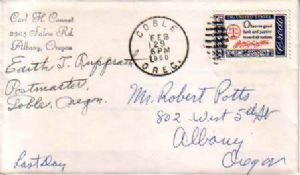 Carl H. Connet
2905 Salem Rd.
Albany, Oregon
COBLE
FEB
29
PM
1960
OREG.
U.S. UNITED STATES
Observe good
faith and justice
toward all nations
Edith T. Ruppratt
Postmaster,
Coble, Oregon.
Mr. Robert Potts
802 West 5th St
Albany
Oregon
Last Day